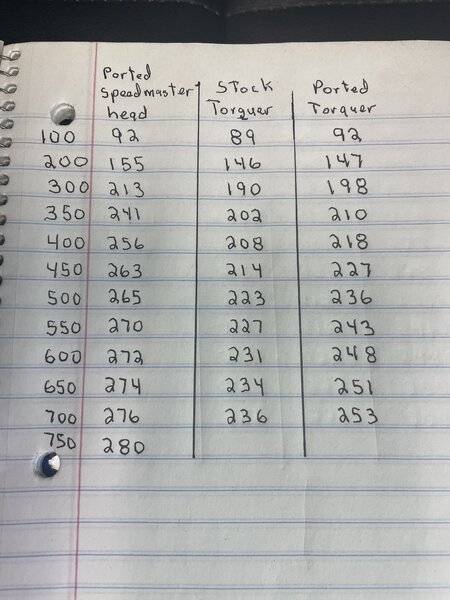 Ported Speedmaster head Stock Torquer Ported Torquer
100 92 89 92
200 155 146 147
300 213 190 198
350 241 202 210
400 256 208 218
450 263 214 227
500 265 223 236
550 270 227 243
600 272 231 248
650 274 234 251
700 276 236 253
750 280